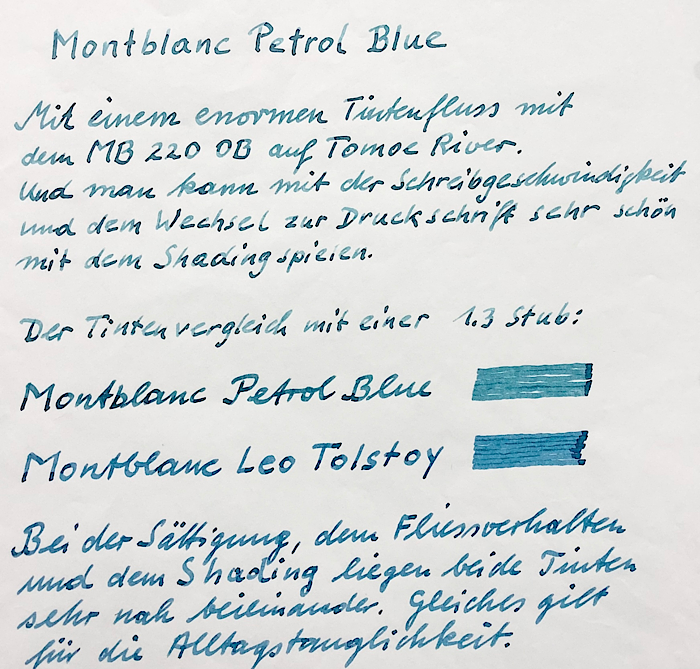 Montblanc Petrol Blue
Mit einem enormen Tintenfluss mit
dem MB 220 OB auf Tomoe River.
Und man kann mit der Schreibgeschwindigkeit
und dem Wechsel zur Druckschrift sehr schön
mit dem Shading spielen.
Der Tintenvergleich mit einer 1.3 Stub:
Montblanc Petrol Blue
Montblanc Leo Tolstoy
Bei der Sättigung, dem Fliessverhalten
und dem Shading liegen beide Tinten
sehr nah beieinander. Gleiches gilt
für die Alltagstauglichkeit.